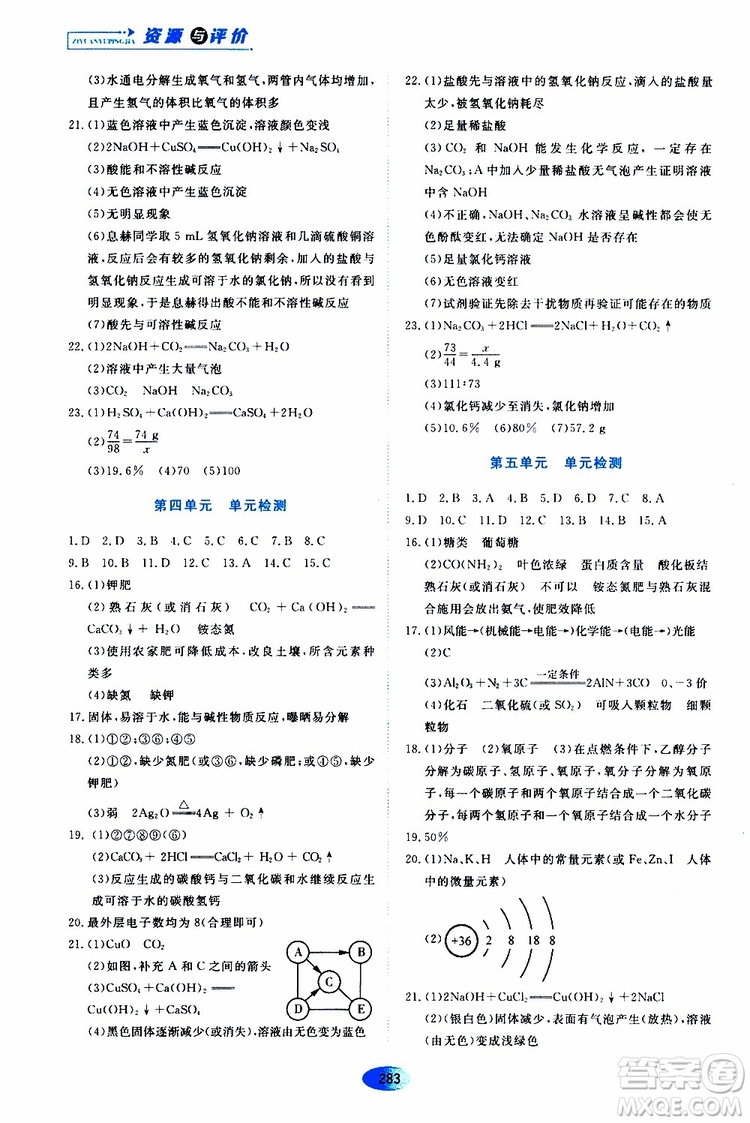 ZIYUANYUPINGJIA 资源与评价
(3)水通电分解生成氧气和氢气,两管内气体均增加,
且产生氢气的体积比氧气的体积多
21.(1)蓝色溶液中产生蓝色沉淀,溶液颜色变浅
(2)2NaOH+CuSO₄══Cu(OH)₂↓+Na₂SO₄
(3)酸能和不溶性碱反应
(4)无色溶液中产生蓝色沉淀
(5)无明显现象
(6)息赫同学取 5 mL 氢氧化钠溶液和几滴硫酸铜溶
液,混合后会有较多的氢氧化钠剩余,加入的盐酸与
氢氧化钠反应生成可溶于水的氯化钠,所以没有看到
明显现象,于是息赫得出和不溶性碱反应
(7)酸先与可溶性碱反应
22.(1)2NaOH+CO₂══Na₂CO₃+H₂O
(2)溶液中产生大量气泡
(3)CO₂ NaOH Na₂CO₃
23.(1)H₂SO₄+Ca(OH)₂══CaSO₄+2H₂O
(2)74/98=74 g/x
(3)19.6% (4)70 (5)100
第四单元 单元检测
1.D 2.D 3.C 4.C 5.C 6.D 7.D 8.C
9.B 10.B 11.B 12.D 13.C 14.D 15.C
16.(1)钾肥
(2)熟石灰(或消石灰) CO₂+Ca(OH)₂══
CaCO₃↓+H₂O 铵态氮
(3)使用农家肥可降低成本,改良土壤,所含营养元素种
类多
(4)缺氮 缺钾
17.固体,易溶于水,能与碱性物质反应,曝晒易分解
18.(1)①②;③⑥;④⑤
(2)①②,缺少氮肥(或③⑥,缺少磷肥;或④⑤,缺少
钾肥)
(3)弱 2Ag₂O══△4Ag+O₂↑
19.(1)①⑦⑧⑨(⑥)
(2)CaCO₃+2HCl══CaCl₂+H₂O+CO₂↑
(3)反应生成的碳酸钙与二氧化碳和水继续反应生成
可溶于水的碳酸氢钙
20.最外层电子数均为 8(合理即可)
21.(1)CuO CO₂
(2)如图,补充 A 和 C 之间的箭头
(3)CuSO₄+Ca(OH)₂══
Cu(OH)₂↓+CaSO₄
(4)黑色固体逐渐减少(或消失),溶液由无色变为蓝色
A B
C
D E
22.(1)盐酸先与溶液中的氢氧化钠反应,滴入的盐酸量
太少,被氢氧化钠耗尽
(2)足量稀盐酸
(3)CO₂ 和 NaOH 能发生化学反应,一定存在
Na₂CO₃;A 中加入少量稀盐酸无气泡产生证明溶液
中含有 NaOH
(4)不正确,NaOH、Na₂CO₃ 水溶液呈碱性都能使无
色酚酞变红,无法确定一定存在 NaOH
(5)足量氯化钙溶液
(6)无色溶液变红
(7)试剂验证先除去干扰物质再验证其他的物质
23.(1)Na₂CO₃+2HCl══2NaCl+H₂O+CO₂↑
(2)73/44=x/4.4 g
(3)111:73
(4)氯化钙减少至消失,氯化钠增加
(5)10.6% (6)80% (7)57.2 g
第五单元 单元检测
1.D 2.B 3.A 4.B 5.B 6.D 7.C 8.C
9.D 10.C 11.D 12.C 13.B 14.B 15.A
16.(1)糖类 葡萄糖
(2)CO(NH₂)₂ 叶色浓绿 蛋白质含量 酸化板结
熟石灰(或消石灰) 不可以 铵态氮肥与熟石灰混
合施用会放出氨气,使肥效降低
17.(1)风能→(机械能→电能→)化学能→(电能→)光能
(2)C
(3)Al₂O₃+N₂+3C══一定条件2AlN+3CO -3 价
(4)化石 二氧化硫(或 SO₂) 可吸入颗粒物 细颗
粒物
18.(1)分子 (2)氧原子 (3)在点燃条件下,乙醇分子
分裂为碳原子、氢原子、氧原子,氧分子分裂为氧原
子,每一个碳原子和两个氧原子结合成一个二氧化碳
分子,每两个氢原子和一个氧原子结合成一个水分子
19.50%
20.(1)Na、K、H 人体中的常量元素(或 Fe、Zn、I 人体
中的微量元素)
(2) +36 2 8 18 8
21.(1)2NaOH+CuCl₂══Cu(OH)₂↓+2NaCl
(2)(银白色)固体减少,表面有气泡产生(放热),溶液
(由无色)变成浅绿色
283
答案圈
MXQE.COM